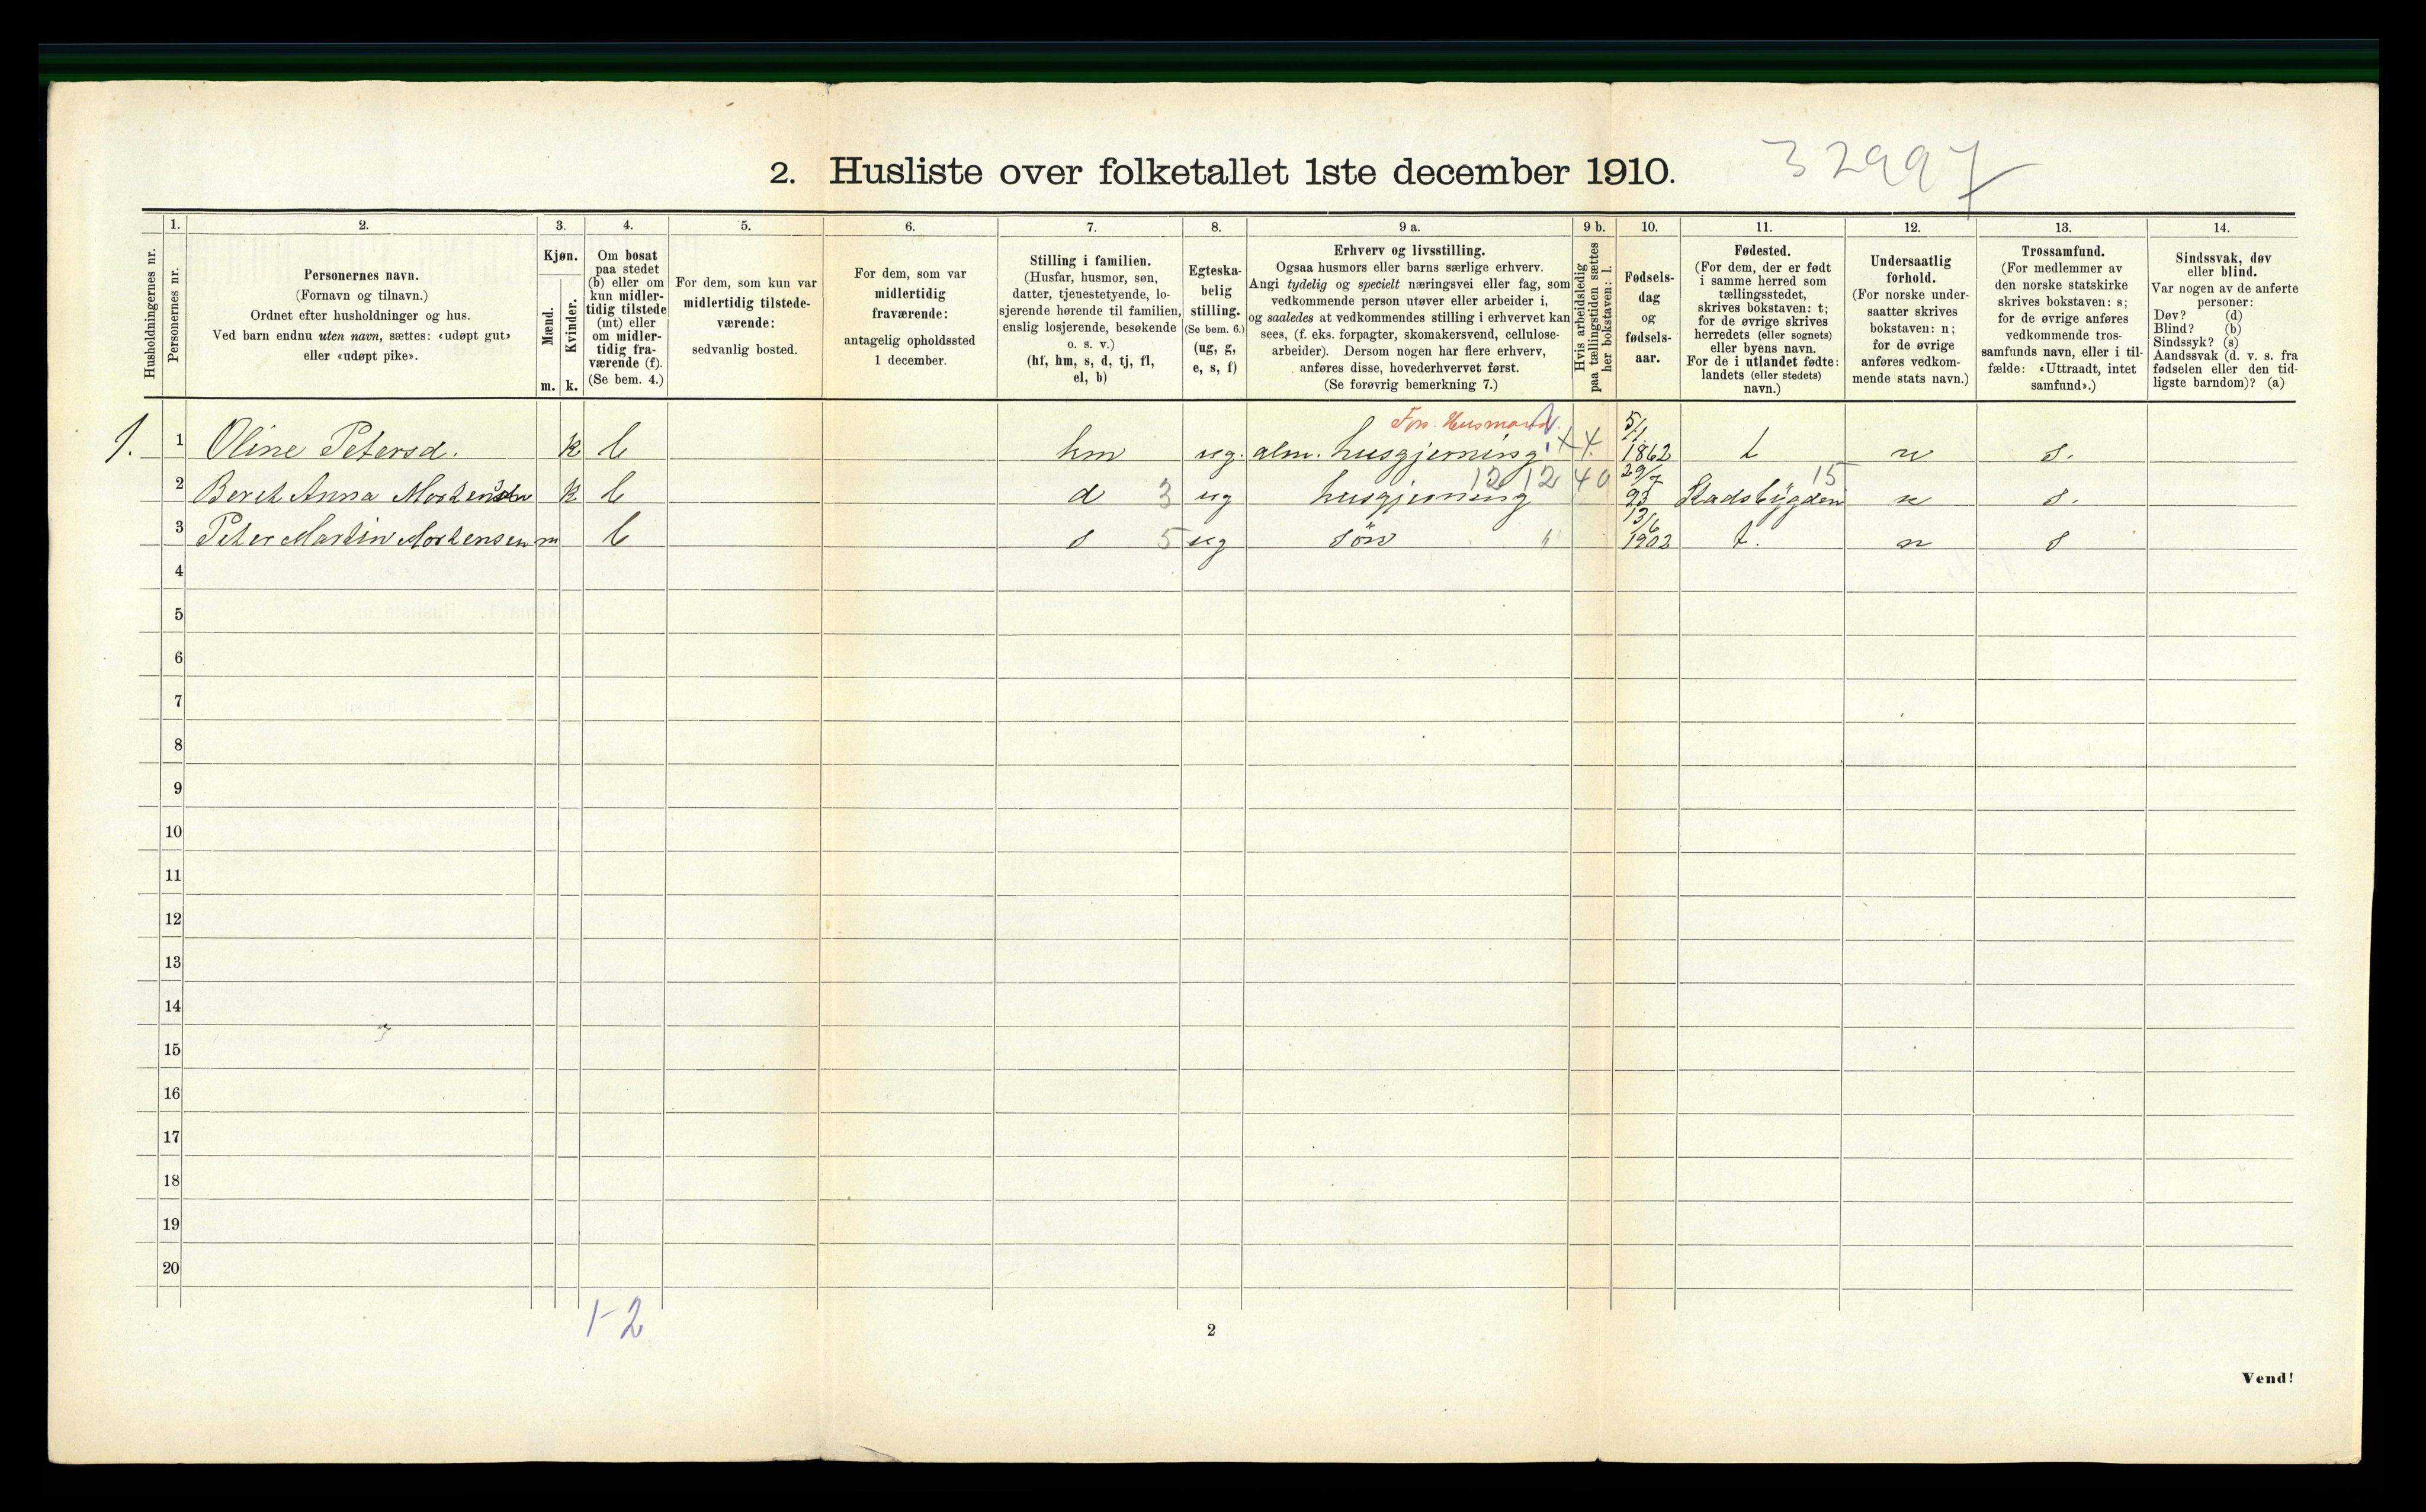 2. Husliste over folketallet 1ste december 1910.
32997
Husholdningernes nr.
1.
Personernes nr.
2.
Personernes navn.
(Fornavn og tilnavn.)
Ordnet efter husholdninger og hus.
Ved barn endnu uten navn, sættes: «udøpt gut»
eller «udøpt pike».
3.
Kjøn.
Mænd.
m.
Kvinder.
k.
4.
Om bosat
paa stedet
(b) eller om
kun midler-
tidig tilstede
(mt) eller
om midler-
tidig fra-
værende (f).
(Se bem. 4.)
5.
For dem, som kun var
midlertidig tilstede-
værende:
sedvanlig bosted.
6.
For dem, som var
midlertidig
fraværende:
antagelig opholdssted
1 december.
7.
Stilling i familien.
(Husfar, husmor, søn,
datter, tjenestetyende, lo-
sjerende hørende til familien,
enslig losjerende, besøkende
o. s. v.)
(hf, hm, s, d, tj, fl,
el, b)
8.
Egteska-
belig
stilling.
(Se bem. 6.)
(ug, g,
e, s, f)
9 a.
Erhverv og livsstilling.
Ogsaa husmors eller barns særlige erhverv.
Angi tydelig og specielt næringsvei eller fag, som
vedkommende person utøver eller arbeider i,
og saaledes at vedkommendes stilling i erhvervet kan
sees, (f. eks. forpagter, skomakersvend, cellulose-
arbeider). Dersom nogen har flere erhverv,
anføres disse, hovederhvervet først.
(Se forøvrig bemerkning 7.)
9 b.
Hvis arbeidsledig
paa tællingstiden sættes
her bokstaven: l.
10.
Fødsels-
dag
og
fødsels-
aar.
11.
Fødested.
(For dem, der er født
i samme herred som
tællingsstedet,
skrives bokstaven: t;
for de øvrige skrives
herredets (eller sognets)
eller byens navn.
For de i utlandet fødte:
landets (eller stedets)
navn.)
12.
Undersaatlig
forhold.
(For norske under-
saatter skrives
bokstaven: n;
for de øvrige
anføres vedkom-
mende stats navn.)
13.
Trossamfund.
(For medlemmer av
den norske statskirke
skrives bokstaven: s;
for de øvrige anføres
vedkommende tros-
samfunds navn, eller i til-
fælde: «Uttraadt, intet
samfund».)
14.
Sindssvak, døv
eller blind.
Var nogen av de anførte
personer:
Døv? (d)
Blind? (b)
Sindssyk? (s)
Aandssvak (d. v. s. fra
fødselen eller den tid-
ligste barndom)? (a)
1. 1 Oline Petersd. k b hm ug. alm. husgjerning 5/1 1862 t n s.
2 Beret Anna k b d 3 ug husgjerning 12 12 40 29/7 93 Stadsbygden 15 n s.
3 Peter Martin Mortensen m b s 5 ug sön " 13/6 1902 t. n s
4
5
6
7
8
9
10
11
12
13
14
15
16
17
18
19
20
1-2
2
Vend!